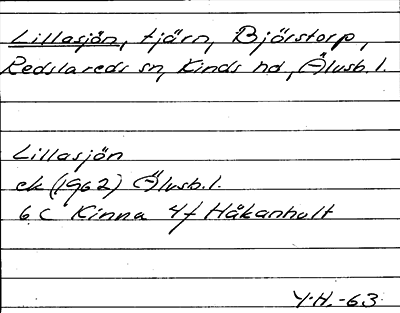 Lillasjön, tjärn, Björstorp,
Redslareds sn, Kinds hd, Älvsb. l.
Lillasjön
ek (1962) Älvsb. l.
6 C Kinna 4f Håkanhult
Y.H. -63